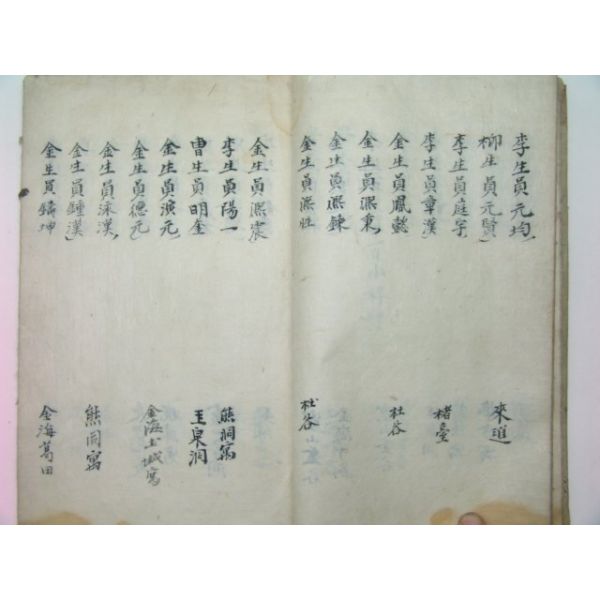 李生員元均 來進
柳生員元賢
李生員庭宇
李生員章漢 楮臺
金生員鳳懿 杜谷
金生員熙東
金生員熙鍊
金生員熙 杜谷
金生員熙震
李生員陽一 熊洞寓
曺生員明奎 王泉洞
金生員演元
金生員德元 金海土城寓
金生員泳漢
金生員鍾漢 熊洞寓
金生員鑄坤 金海葛田